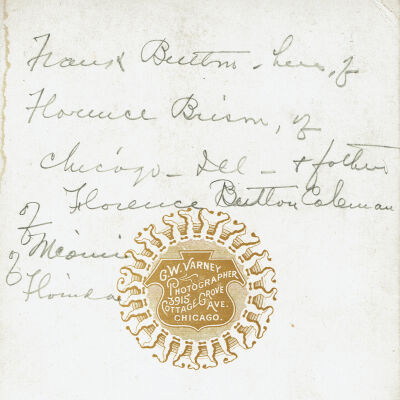 Frank Button - here, of
Florence Brison, of
Chicago - Ill - & father
of Florence Button Coleman
of Miami
Florida
G.W. VARNEY
PHOTOGRAPHER
3915
COTTAGE GROVE
AVE.
CHICAGO.